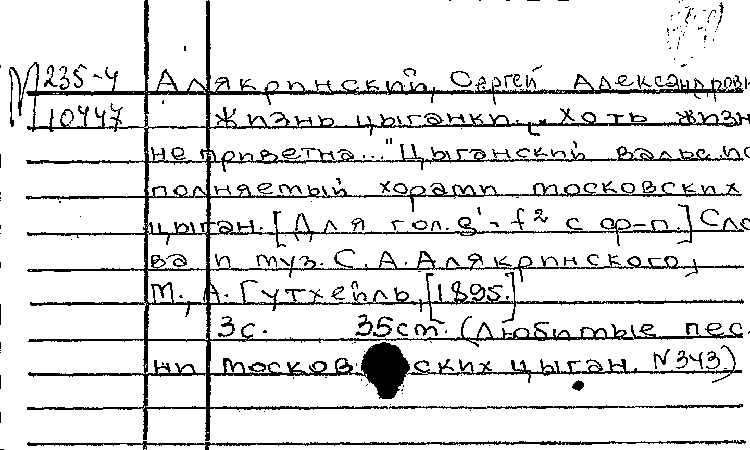 М 235-4 Алякринский, Сергей Александрови
10447 Жизнь цыганки... „Хоть жизн
не приветна..." Цыганский вальс ис
полняемый хорами московских
цыган. [Для гол. g¹-f² с ф-п.] Сло
ва и муз. С. А. Алякринского,
М., А. Гутхейль, [1895.]
3с. 35см. (Любимые пес
ни московских цыган. N343)